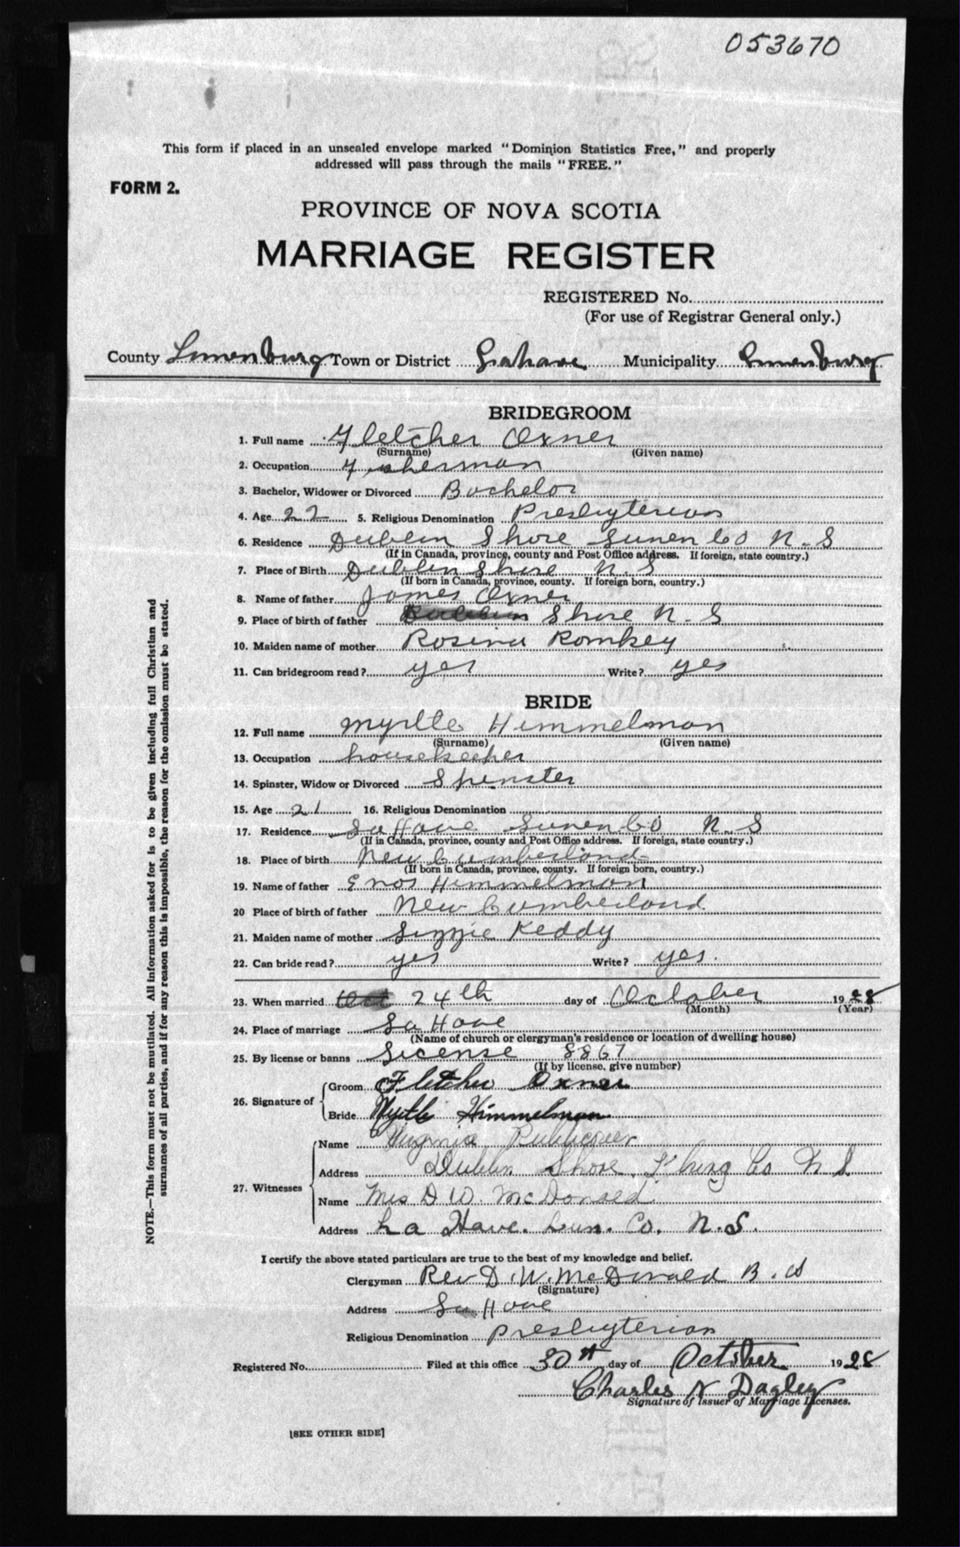 053670
This form if placed in an unsealed envelope marked "Dominion Statistics Free," and properly
addressed will pass through the mails "FREE."
FORM 2.
PROVINCE OF NOVA SCOTIA
MARRIAGE REGISTER
REGISTERED No.
(For use of Registrar General only.)
County Lunenburg Town or District Lahave Municipality Lunenburg
BRIDEGROOM
1. Full name Fletcher Oxner
(Surname) (Given name)
2. Occupation Fisherman
3. Bachelor, Widower or Divorced Bachelor
4. Age 22 5. Religious Denomination Presbyterian
6. Residence Dublin Shore Lunen Co N.S
(If in Canada, province, county and Post Office address. If foreign, state country.)
7. Place of Birth Dublin Shore N.S
(If born in Canada, province, county. If foreign born, country.)
8. Name of father James Oxner
9. Place of birth of father Dublin Shore N.S
10. Maiden name of mother Rosina Romkey
11. Can bridegroom read? yes Write? yes
BRIDE
12. Full name Myrtle Himmelman
(Surname) (Given name)
13. Occupation housekeeper
14. Spinster, Widow or Divorced Spinster
15. Age 21 16. Religious Denomination
17. Residence La Have Lunen Co N.S
(If in Canada, province, county and Post Office address. If foreign, state country.)
18. Place of birth New Cumberland
(If born in Canada, province, county. If foreign born, country.)
19. Name of father Enos Himmelman
20 Place of birth of father New Cumberland
21. Maiden name of mother Lizzie Keddy
22. Can bride read? yes Write? yes.
23. When married 24th day of October 1928
(Month) (Year)
24. Place of marriage La Have
(Name of church or clergyman's residence or location of dwelling house)
25. By license or banns License 8867
(If by license, give number)
26. Signature of
Groom Fletcher Oxner
Bride Myrtle Himmelman
27. Witnesses
Name Virginia Publicover
Address Dublin Shore, Co N S
Name Mrs D. W. McDonald
Address La Have. Lun. Co. N.S.
I certify the above stated particulars are true to the best of my knowledge and belief.
Clergyman Rev D. W. McDonald B.
(Signature)
Address La Have
Religious Denomination Presbyterian
Registered No. Filed at this office 30th day of October 1928
Charles N Dagley
Signature of Issuer of Marriage Licenses.
[SEE OTHER SIDE]
NOTE.—This form must not be mutilated. All information asked for is to be given including full Christian and
surnames of all parties, and if for any reason this is impossible, the reason for the omission must be stated.